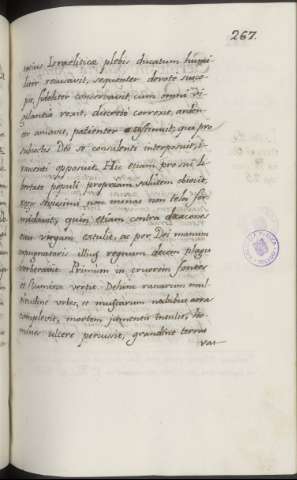 267.
totius Israeliticæ plebis ducatum humi-
liter recusavit, sequenter devote susce-
pit, fideliter conservavit, cum omni vi-
gilantia rexit, discrete correxit, arden-
ter amavit, patienter sustinuit, qua pro
subiectis Deo se consulenti interposuit,
opposuit. Hic etiam pro sui li-
bertate populi propriam salutem obiecit,
Regis sævissimi non minas non tela for-
midans, quin etiam contra dracones
eius virgam extulit, ac per Dei manum
expugnatoris illius regnum decem plagis
verberavit. Primum in cruorem fontes
et flumina vertit. Dehinc ranarum mul-
titudine urbes, et muscarum nubibus arva
complevit, mortem jumentis intulit, ho-
mines ulcere percussit, grandine terras
vas-